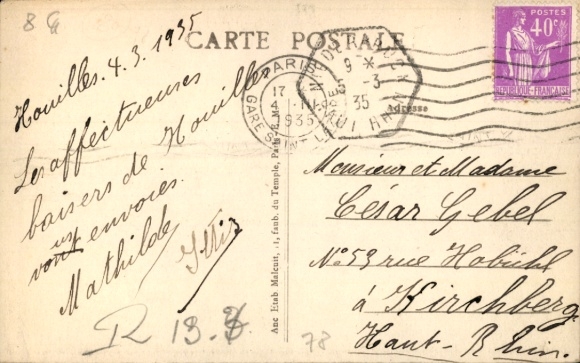 8
CARTE POSTALE
Houilles. 4. 3. 1935
Les affectueuses
baisers de Houilles
envoies.
Mathilde
PARIS
17
1935
GARE SAINT L
9 *
-3
35
HAUT RHIN
POSTES
40c
REPUBLIQUE-FRANÇAISE
Adresse
Monsieur et Madame
César Gebel
No 53 rue Hobühl
à Kirchberg
Haut-Rhin.
Anc Etab. Malcuit, 41, faub. du Temple, Paris
R 13.
78